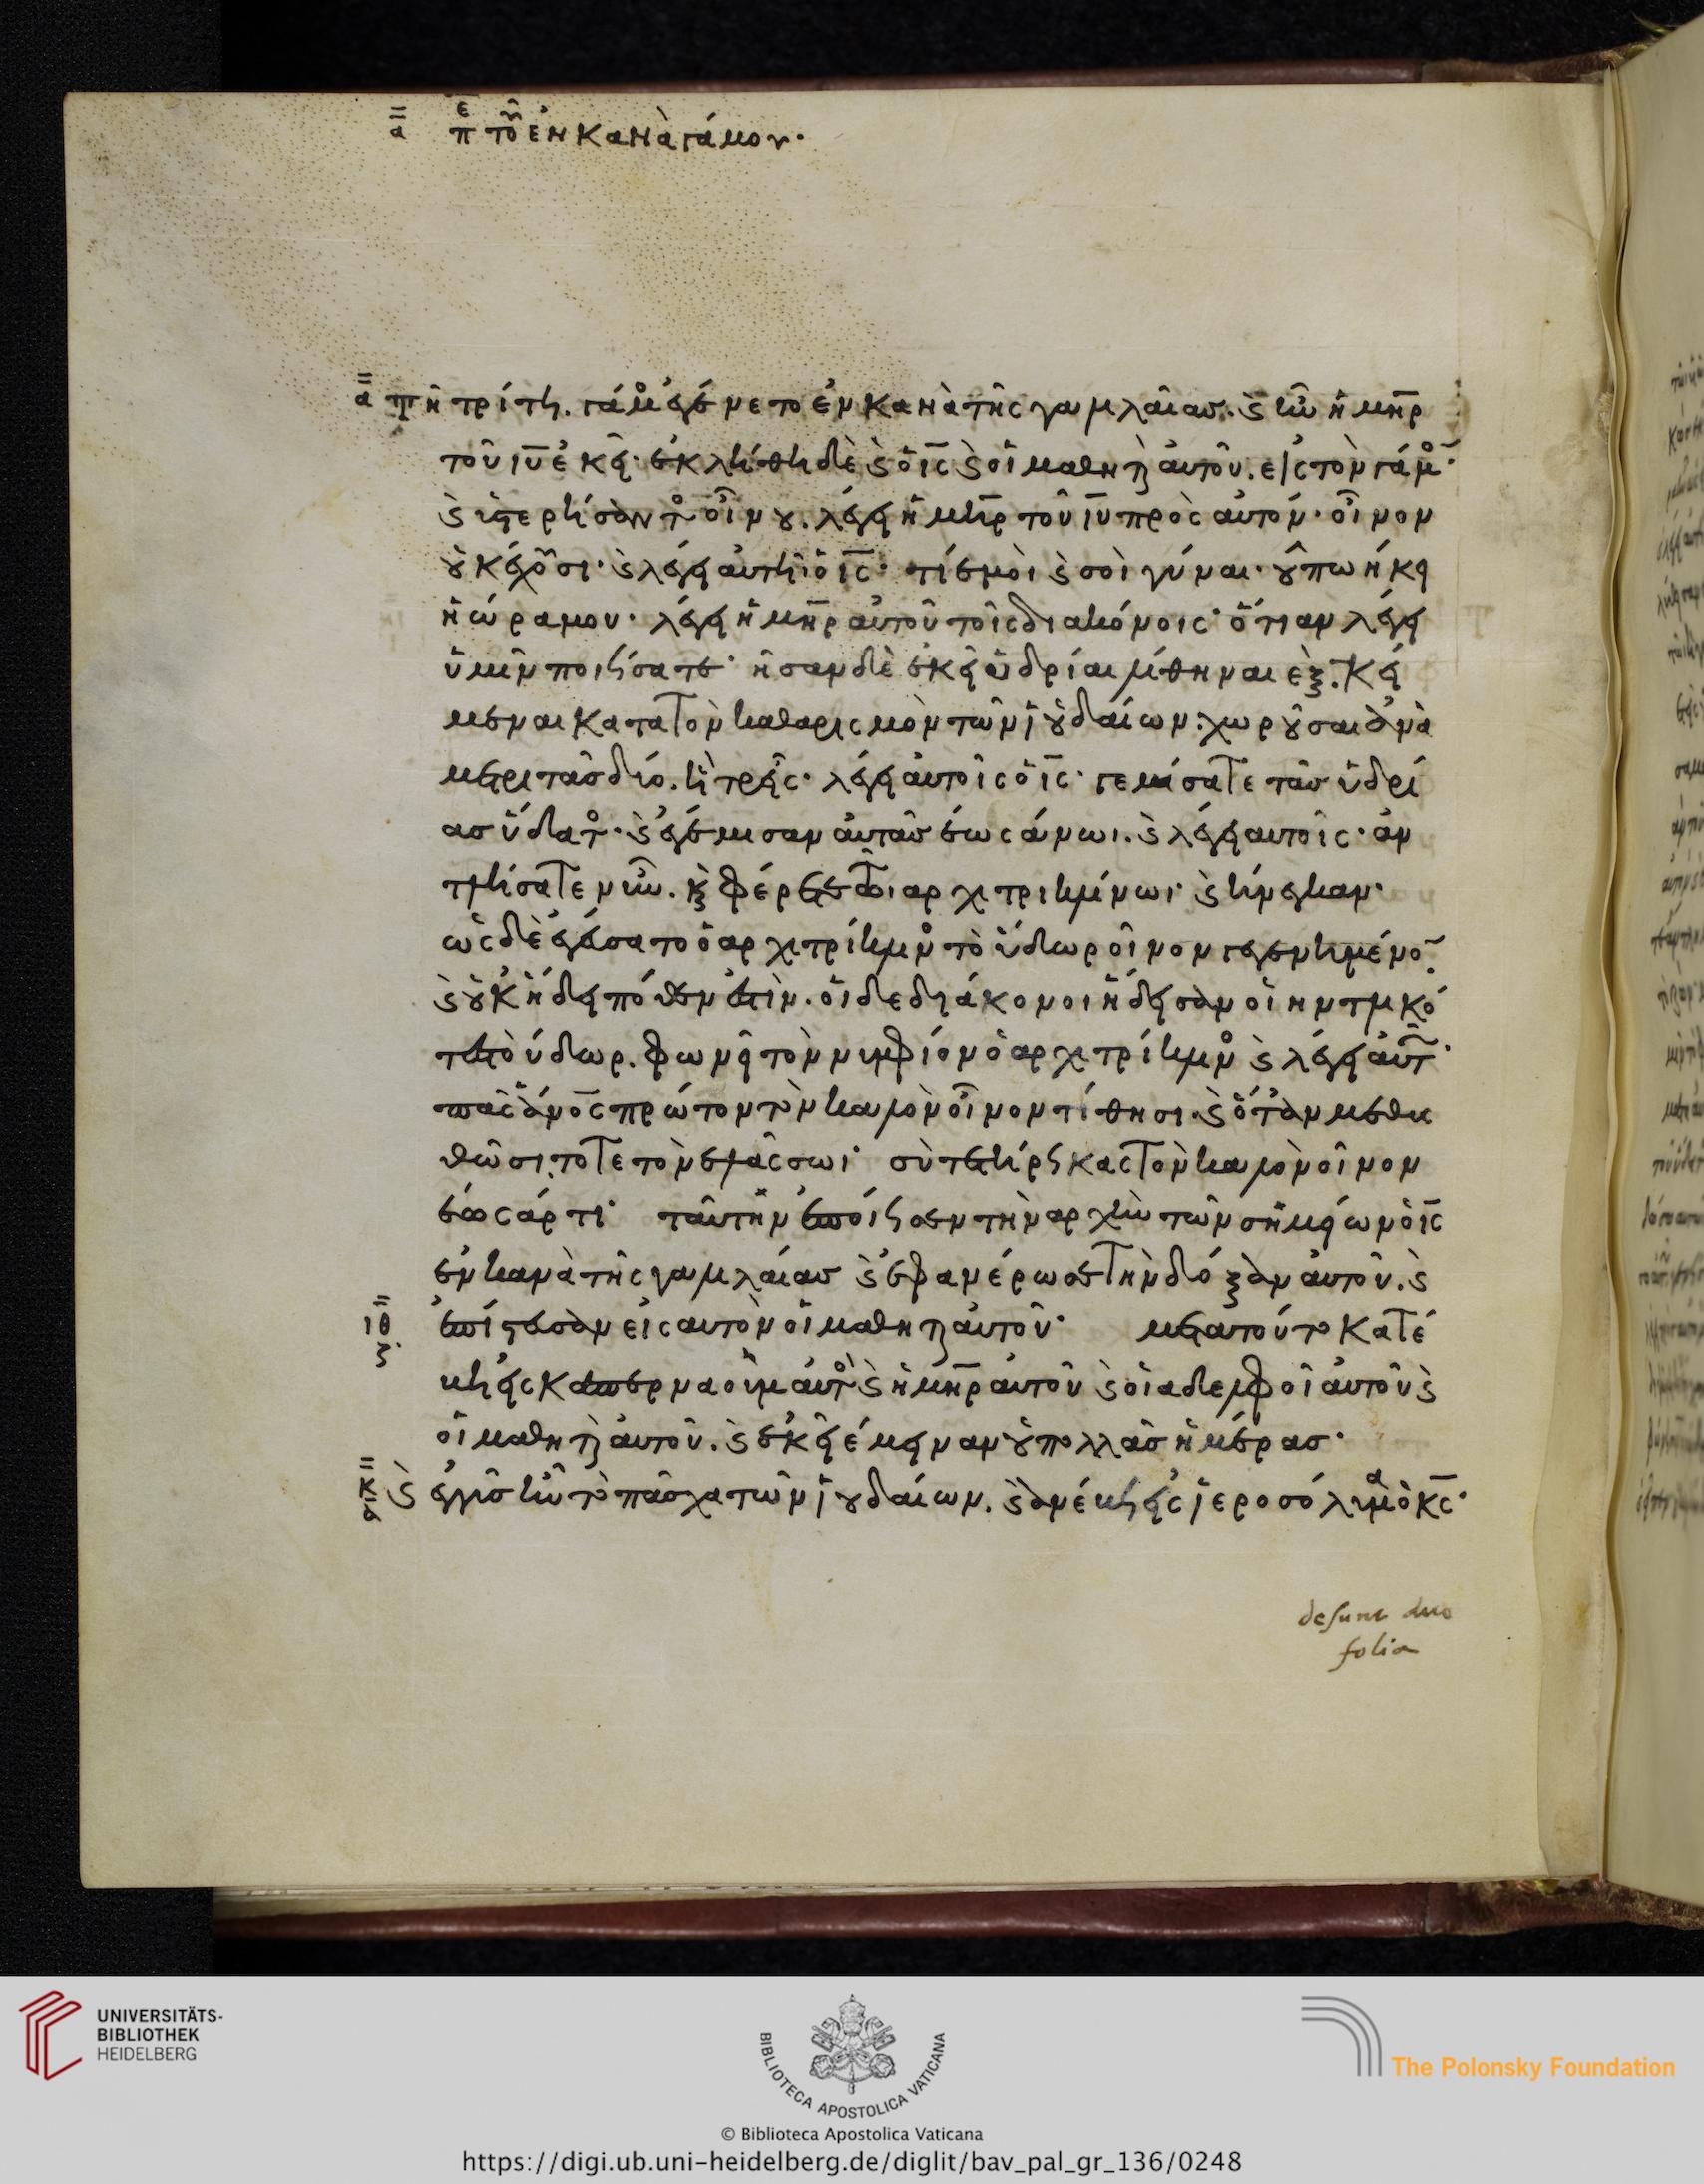 α̿ π τοῦ ἐν κανὰ γάμου·
α̿ τῆ τρίτη. γάμο ἐγένετο ἐν κανὰ τῆς γαλιλαίασ. ϛ ἦν ἡ μη̅ρ
τοῦ ιυ̅ ἐκεῖ· ἐκλήθη δὲ ϛ ὁ ις̅ ϛ οἱ μαθηταὶ αὐτοῦ. εἰς τὸν γάμο·
ϛ ὑστερήσαντο οἴνου. λέγει ἡ μη̅ρ τοῦ ιυ̅ πρὸς αὐτόν· οἶνον
οὐκ ἔχουσι· ϛ λέγει αὐτῆ ὁ ις̅· τί ἐμοὶ ϛ σοὶ γύναι· οὔπω ἥκει
ἡ ὥρα μου· λέγει ἡ μη̅ρ αὐτοῦ τοῖς διακόνοις· ὅτι ἂν λέγει
ὑμῖν ποιήσατε· ἦσαν δὲ ἐκεῖ ὑδρίαι λίθηναι ἓξ. κεί
μεναι κατα τὸν καθαρισμὸν τῶν ἰουδαίων. χωροῦσαι ἀνὰ
μετριτὰσ δύο. ἢ τρεῖς· λέγει αὐτοῖς ὁ ις̅· γεμίσατε τὰσ ὑδρί
ασ ὕδατο· ϛ ἐγέμισαν αὐτὰσ ἕως ἄνωι. ϛ λέγει αυτοῖς· ἀν
τλήσατε νῦν. κ φέρετε τῶι αρχιτρικλίνωι· ϛ ἤνεγκαν·
ὡς δὲ ἐγεύσατο ὁ αρχιτρίκλινο τὸ ὕδωρ οἶνον γεγενημένο
ϛ οὐκ ἤδει πόθεν ἐστὶν. οἱ δε διάκονοι ἤδεισαν οἱ ηντλικό
τες τὸ ὕδωρ. φωνεῖ τὸν νυμφίον ὁ αρχιτρίκλινο ϛ λέγει αὐτῶ·
πᾶς ἄνο̅ς πρώτον τὸν καλὸν οἶνον τίθησι. ϛ ὅταν μεθυ
θῶσι τότε τὸν ἐλάσσωι· σὺ τετήρηκας τὸν καλὸν οἶνον
ἕως ἄρτι· ταύτην ἐποίησεν τὴν αρχὴν τῶν σημείων ὁ ις̅
ἐν κανὰ τῆς γαλιλαίασ ϛ ἐφανέρωσε τὴν δόξαν αὐτοῦ. ϛ
ι̿θ ζ ἐπίστευσαν εἰς αυτὸν οἱ μαθηταὶ αὐτοῦ· μετα τούτο κατέ
βη εἰς καπερναοὺμ αὐτὸ ϛ ἡ μη̅ρ αὐτοῦ ϛ οἱ αδελφοὶ αὐτοῦ ϛ
οἱ μαθηταὶ αὐτοῦ. ϛ ἐκεῖ ἔμειναν οὐ πολλὰσ ἡμέρασ·
κ̿ α ϛ ἐγγὺσ ἦν τὸ πάσχα τῶν ἰουδαίων. ϛ ἀνέβη εἰς ἱεροσόλυμα ὁ κς̅·
desunt duo
folia
UNIVERSITÄTS-
BIBLIOTHEK
HEIDELBERG
BIBLIOTECA APOSTOLICA VATICANA
The Polonsky Foundation
© Biblioteca Apostolica Vaticana
https://digi.ub.uni-heidelberg.de/diglit/bav_pal_gr_136/0248